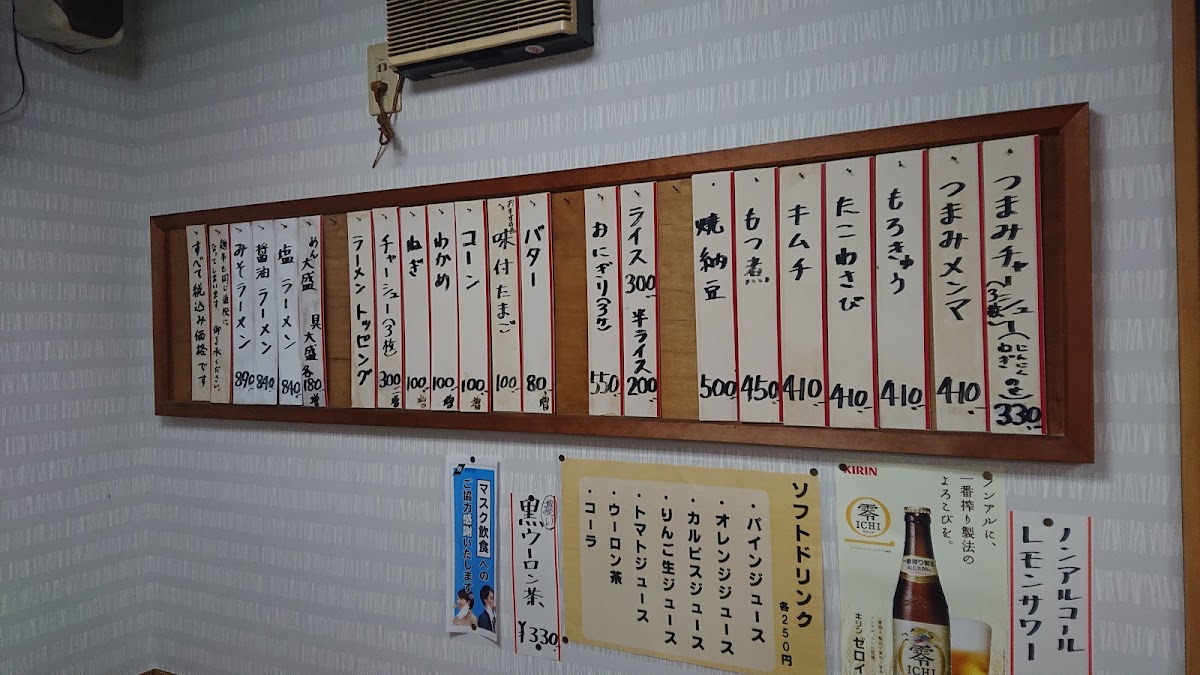 つまみチャーシュー(3枚)(にんにく ねぎ 2ケ) 330
つまみメンマ 410
もろきゅう 410
たこわさび 410
キムチ 410
もつ煮 450
焼納豆 500
ライス 300 半ライス 200
おにぎり(3ケ) 550
バター 80増
おすすめ 味付たまご 100
コーン 100増
わかめ 100増
ねぎ 100増
チャーシュー(3枚) 300増
ラーメントッピング
めん大盛 具大盛 各180増
塩ラーメン 840
醤油ラーメン 840
みそラーメン 890
すべて税込み価格です
マスク飲食への
ご協力感謝いたします
濃い
黒ウーロン茶 ¥330
ソフトドリンク 各250円
・パインジュース
・オレンジジュース
・カルピスジュース
・りんご生ジュース
・トマトジュース
・ウーロン茶
・コーラ
KIRIN
零
ICHI
ノンアルに、
一番搾り製法の
よろこびを。
キリン ゼロイ
零
ICHI
ノンアルコール
レモンサワー